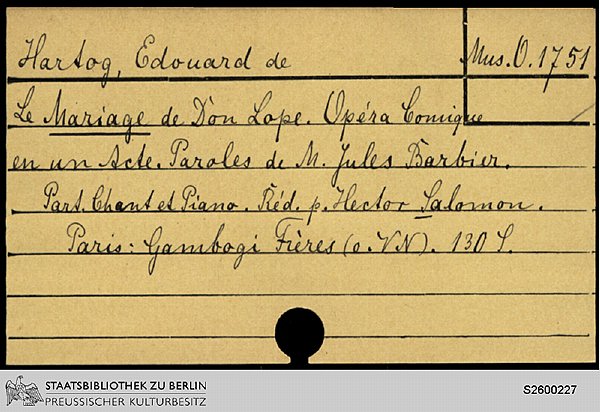 Hartog, Edouard de Mus. O. 1751
Le Mariage de Don Lope. Opéra Comique
en un Acte. Paroles de M. Jules Barbier.
Part. Chant et Piano. Réd. p. Hector Salomon.
Paris: Gambogi Frères (o. VN). 130 S.
STAATSBIBLIOTHEK ZU BERLIN
PREUSSISCHER KULTURBESITZ
S2600227